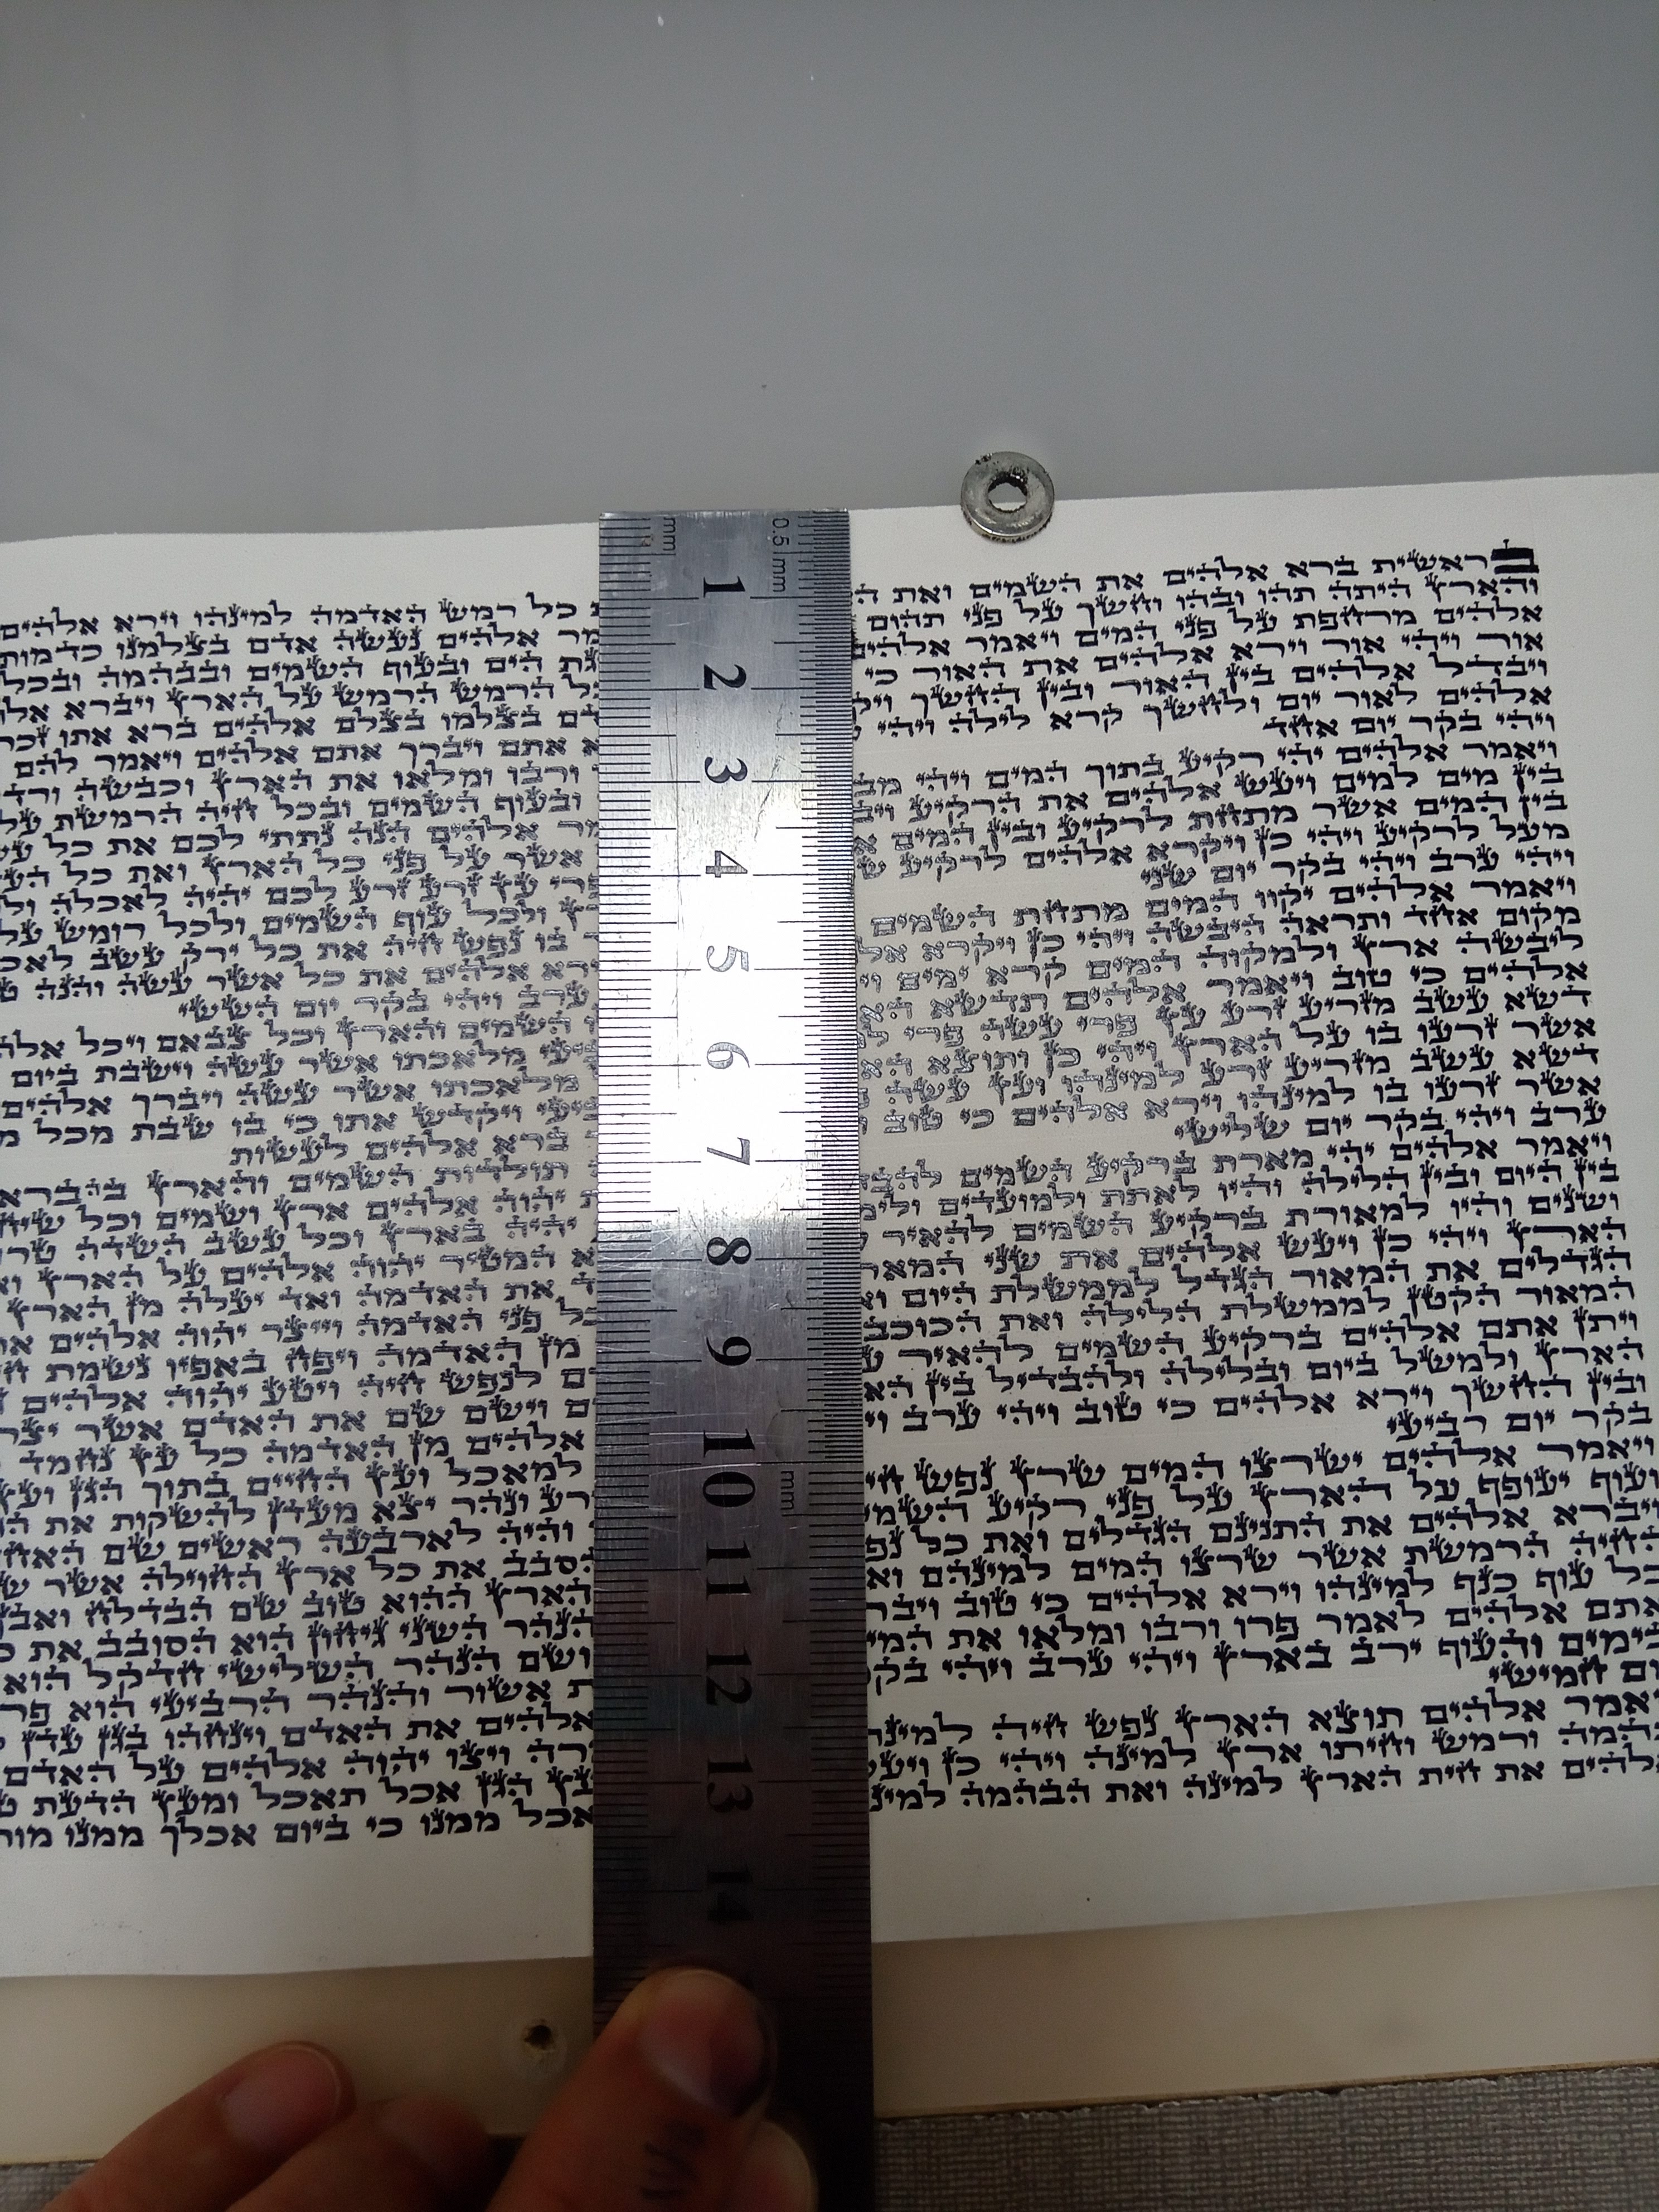 בראשית ברא אלהים את השמים ואת
והארץ היתה תהו ובהו וחשך על פני תהום
אלהים מרחפת על פני המים ויאמר אלהים
אור ויהי אור וירא אלהים את האור כי
ויבדל אלהים בין האור ובין החשך
אלהים לאור יום ולחשך קרא לילה ויהי
ויהי בקר יום אחד
ויאמר אלהים יהי רקיע בתוך המים ויהי
בין מים למים ויעש אלהים את הרקיע
בין המים אשר מתחת לרקיע ובין המים
מעל לרקיע ויהי כן ויקרא אלהים לרקיע
ויהי ערב ויהי בקר יום שני
ויאמר אלהים יקוו המים מתחת השמים
מקום אחד ותראה היבשה ויהי כן ויקרא
ליבשה ארץ ולמקוה המים קרא ימים
אלהים כי טוב ויאמר אלהים תדשא
דשא עשב מזריע זרע עץ פרי עשה פרי
אשר זרעו בו על הארץ ויהי כן ותוצא
דשא עשב מזריע זרע למינהו ועץ עשה
אשר זרעו בו למינהו וירא אלהים כי טוב
ערב ויהי בקר יום שלישי
ויאמר אלהים יהי מארת ברקיע השמים
בין היום ובין הלילה והיו לאתת ולמועדים
ושנים והיו למאורת ברקיע השמים להאיר
הארץ ויהי כן ויעש אלהים את שני
הגדלים את המאור הגדל לממשלת היום
המאור הקטן לממשלת הלילה ואת
ויתן אתם אלהים ברקיע השמים להאיר
הארץ ולמשל ביום ובלילה ולהבדיל בין
ובין החשך וירא אלהים כי טוב ויהי ערב
בקר יום רביעי
ויאמר אלהים ישרצו המים שרץ נפש
ועוף יעופף על הארץ על פני רקיע
ויברא אלהים את התנינם הגדלים ואת כל
החיה הרמשת אשר שרצו המים למינהם
כל עוף כנף למינהו וירא אלהים כי טוב
אתם אלהים לאמר פרו ורבו ומלאו את
בימים והעוף ירב בארץ ויהי ערב ויהי
חמישי
אלהים תוצא הארץ נפש חיה
ורמש וחיתו ארץ למינה ויהי כן
אלהים את חית הארץ למינה ואת הבהמה
כל רמש האדמה למינהו וירא אלהים
אלהים נעשה אדם בצלמנו
הים ובעוף השמים ובבהמה ובכל
הרמש הרמש על הארץ ויברא
בצלמו בצלם אלהים ברא אתו
אתם ויברך אתם אלהים ויאמר להם
ורבו ומלאו את הארץ וכבשה
ובעוף השמים ובכל חיה הרמשת
אלהים הנה נתתי לכם את כל
אשר על פני כל הארץ ואת כל
פרי עץ זרע זרע לכם יהיה לאכלה
ולכל עוף השמים ולכל רומש
בו נפש חיה את כל ירק עשב
אלהים את כל אשר עשה והנה
ערב ויהי בקר יום הששי
השמים והארץ וכל צבאם ויכל
מלאכתו אשר עשה וישבת ביום
מלאכתו אשר עשה ויברך אלהים
ויקדש אתו כי בו שבת מכל
ברא אלהים לעשות
תולדות השמים והארץ בהבראם
יהוה אלהים ארץ ושמים וכל
יהיה בארץ וכל עשב השדה
המטיר יהוה אלהים על הארץ
את האדמה ואד יעלה מן הארץ
כל פני האדמה וייצר יהוה אלהים
מן האדמה ויפח באפיו נשמת
לנפש חיה ויטע יהוה אלהים
וישם שם את האדם אשר יצר
אלהים מן האדמה כל עץ נחמד
למאכל ועץ החיים בתוך הגן
ונהר יצא מעדן להשקות את
והיה לארבעה ראשים שם
הסבב את כל ארץ החוילה אשר
הארץ ההוא טוב שם הבדלח
הנהר השני גיחון הוא הסובב את
ושם הנהר השלישי חדקל הוא
אשור והנהר הרביעי הוא
אלהים את האדם וינחהו בגן עדן
ויצו יהוה אלהים על האדם
עץ הגן אכל תאכל ומעץ הדעת
ממנו כי ביום אכלך ממנו
mm
0.5mm
1
2
3
4
5
6
7
8
9
10
mm
11
12
13
14